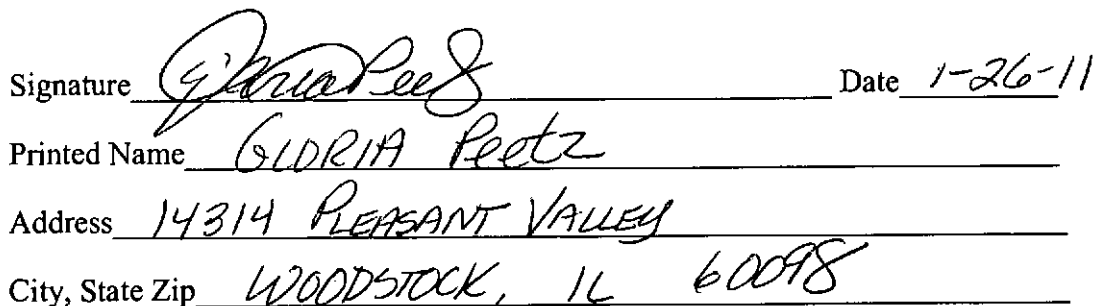 Signature Gloria Peetz Date 1-26-11
Printed Name GLORIA Peetz
Address 14314 PLEASANT VALLEY
City, State Zip WOODSTOCK, IL 60098